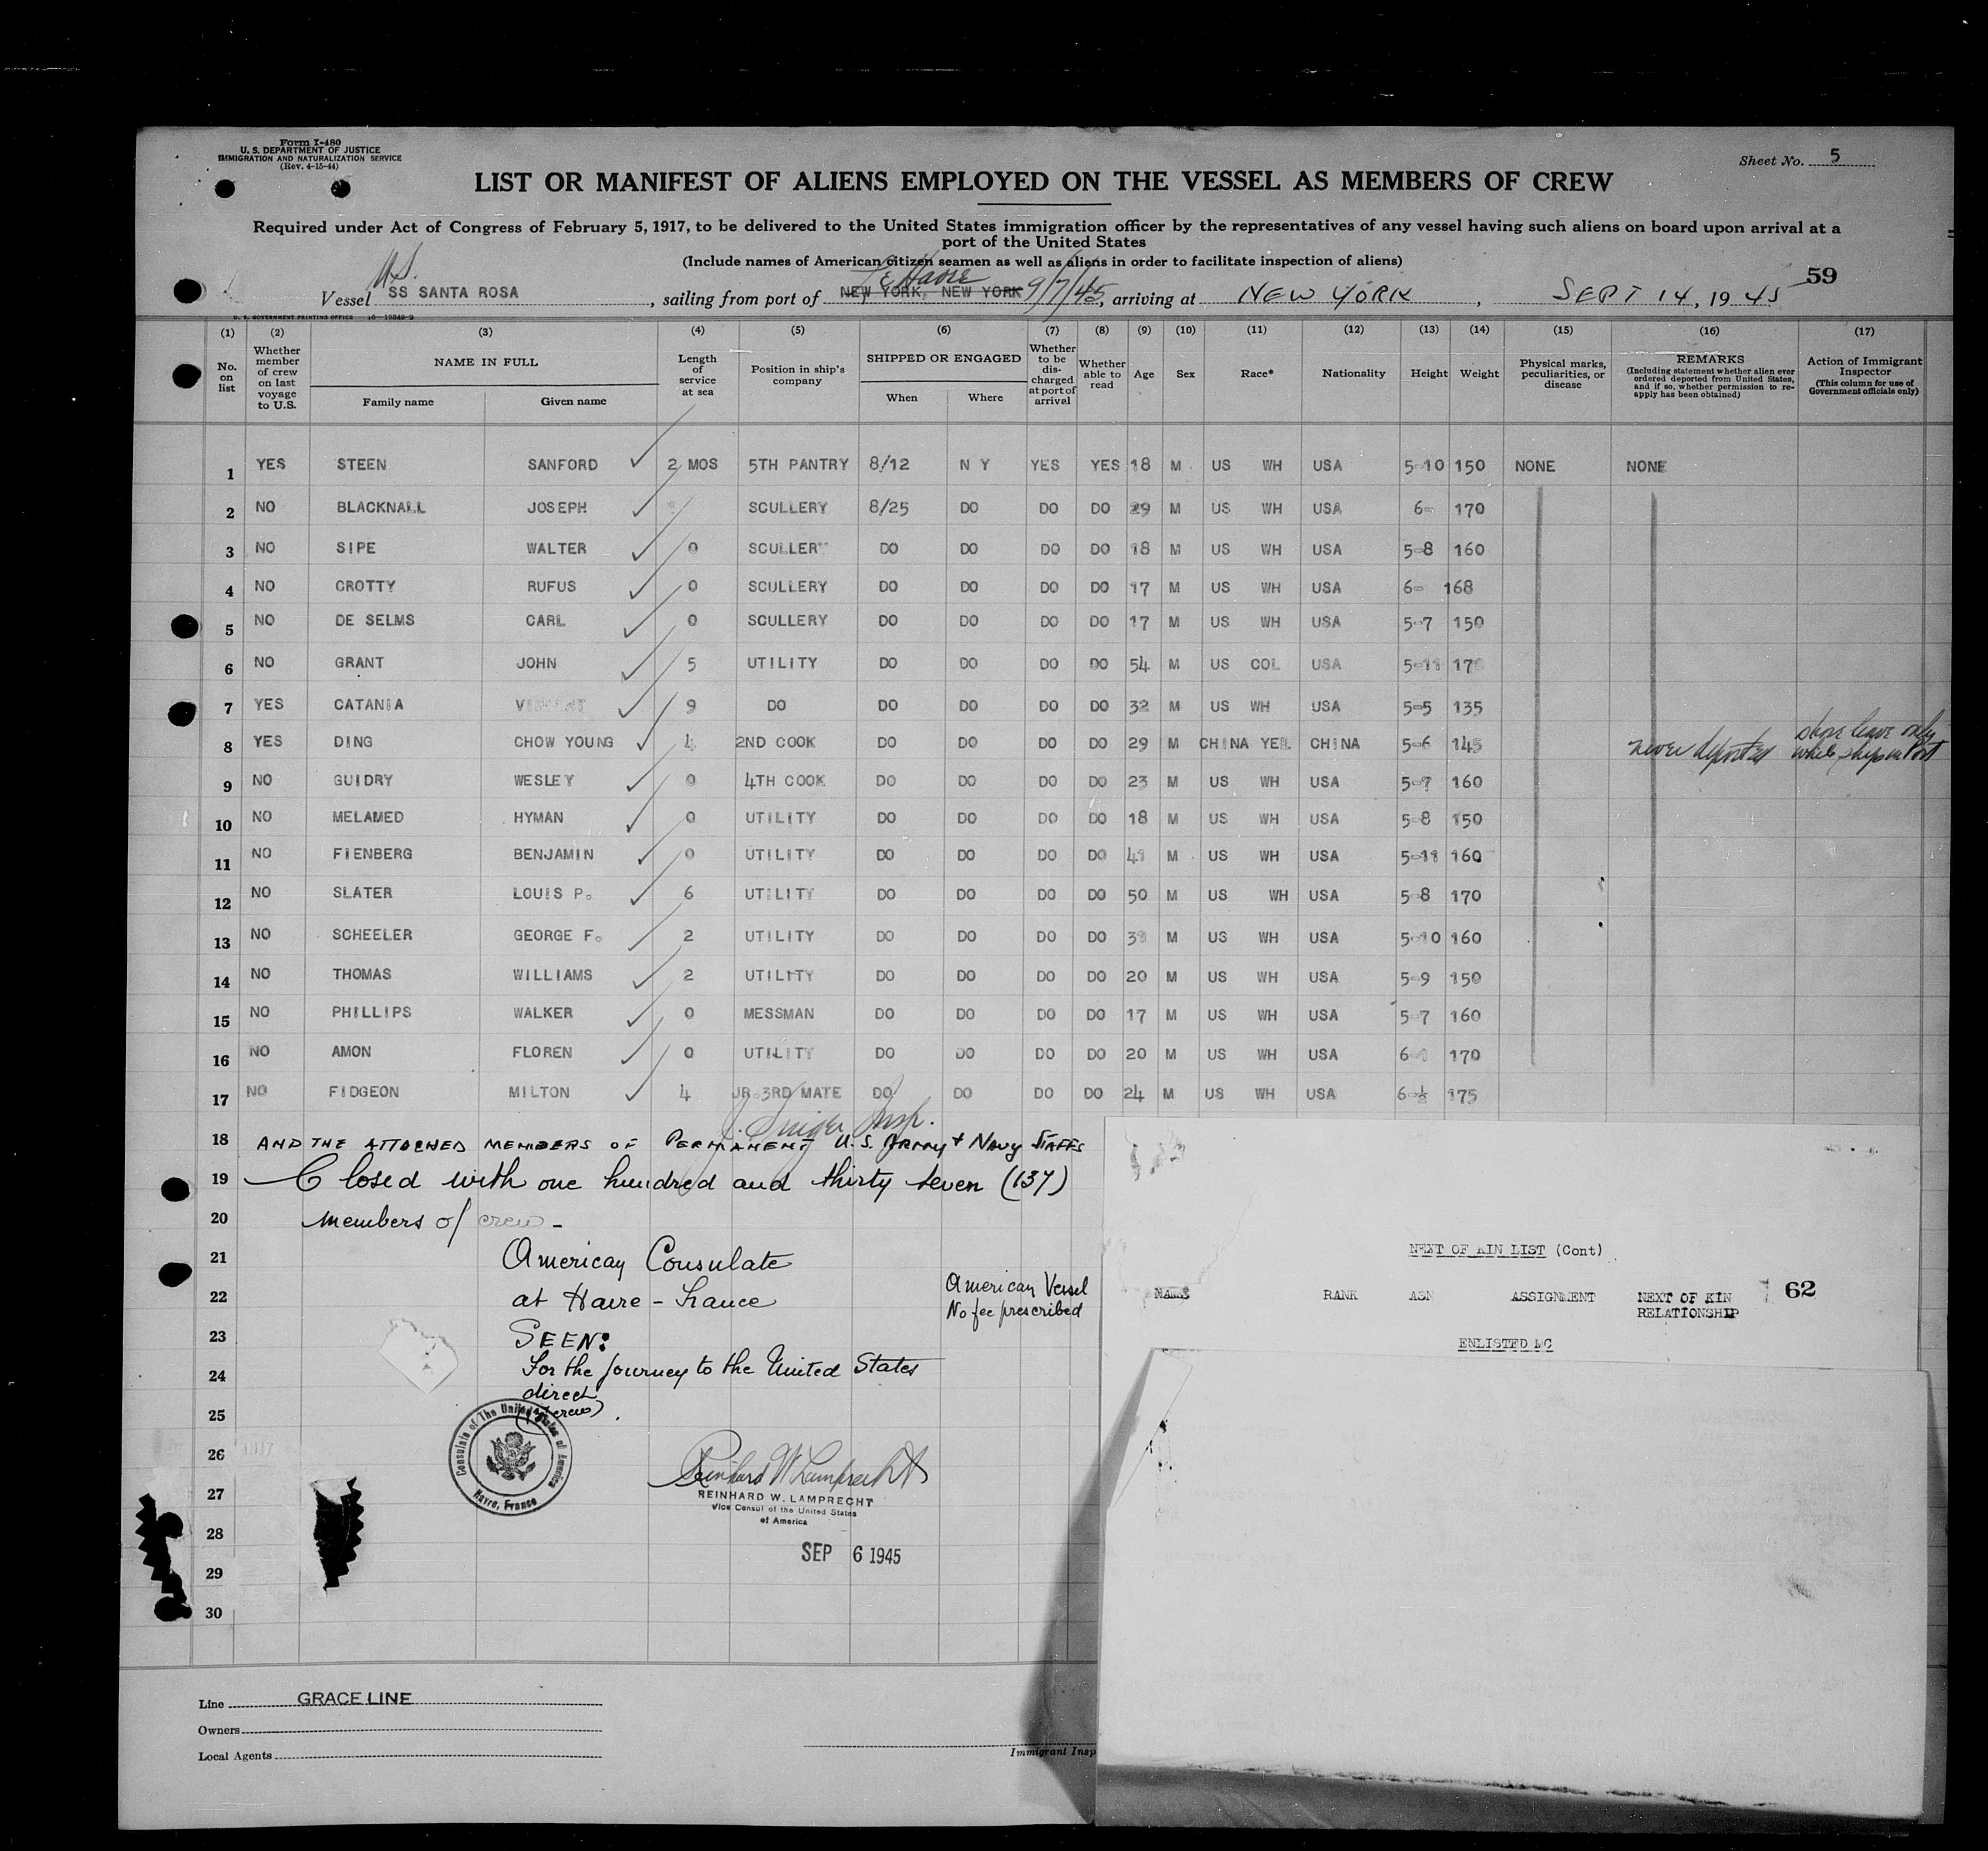 Form I-480
U. S. DEPARTMENT OF JUSTICE
IMMIGRATION AND NATURALIZATION SERVICE
(Rev. 4-15-44)
Sheet No. 5
LIST OR MANIFEST OF ALIENS EMPLOYED ON THE VESSEL AS MEMBERS OF CREW
Required under Act of Congress of February 5, 1917, to be delivered to the United States immigration officer by the representatives of any vessel having such aliens on board upon arrival at a
port of the United States
(Include names of American citizen seamen as well as aliens in order to facilitate inspection of aliens)
59
Vessel SS SANTA ROSA, sailing from port of NEW YORK, NEW YORK Le Havre 9/7/45, arriving at NEW YORK, SEPT 14, 1945
U. S. GOVERNMENT PRINTING OFFICE
(1) (2) (3) (4) (5) (6) (7) (8) (9) (10) (11) (12) (13) (14) (15) (16) (17)
No. on list
Whether member of crew on last voyage to U.S.
NAME IN FULL
Family name
Given name
Length of service at sea
Position in ship's company
SHIPPED OR ENGAGED
When
Where
Whether to be discharged at port of arrival
Whether able to read
Age
Sex
Race*
Nationality
Height
Weight
Physical marks, peculiarities, or disease
REMARKS
(Including statement whether alien ever ordered deported from United States, and if so, whether permission to reapply has been obtained)
Action of Immigrant Inspector
(This column for use of Government officials only)
1 YES STEEN SANFORD 2 MOS 5TH PANTRY 8/12 N Y YES YES 18 M US WH USA 5-10 150 NONE NONE
2 NO BLACKNALL JOSEPH SCULLERY 8/25 DO DO DO 29 M US WH USA 6- 170
3 NO SIPE WALTER 0 SCULLERY DO DO DO DO 18 M US WH USA 5-8 160
4 NO CROTTY RUFUS 0 SCULLERY DO DO DO DO 17 M US WH USA 6- 168
5 NO DE SELMS CARL 0 SCULLERY DO DO DO DO 17 M US WH USA 5-7 150
6 NO GRANT JOHN 5 UTILITY DO DO DO DO 54 M US COL USA 5-11
7 YES CATANIA VINCENT 9 DO DO DO DO DO 32 M US WH USA 5-5 135
8 YES DING CHOW YOUNG 4 2ND COOK DO DO DO DO 29 M CHINA YEL CHINA 5-6 145 never deported shore leave only while ships in Port
9 NO GUIDRY WESLEY 0 4TH COOK DO DO DO DO 23 M US WH USA 5-7 160
10 NO MELAMED HYMAN 0 UTILITY DO DO DO DO 18 M US WH USA 5-8 150
11 NO FIENBERG BENJAMIN 0 UTILITY DO DO DO DO 41 M US WH USA 5-11 160
12 NO SLATER LOUIS P. 6 UTILITY DO DO DO DO 50 M US WH USA 5-8 170
13 NO SCHEELER GEORGE F. 2 UTILITY DO DO DO DO M US WH USA 5-10 160
14 NO THOMAS WILLIAMS 2 UTILITY DO DO DO DO 20 M US WH USA 5-9 150
15 NO PHILLIPS WALKER 0 MESSMAN DO DO DO DO 17 M US WH USA 5-7 160
16 NO AMON FLOREN 0 UTILITY DO DO DO DO 20 M US WH USA 170
17 NO FIDGEON MILTON 4 JR.3RD MATE DO DO DO DO 24 M US WH USA 6-½ 175
Insp.
18 AND THE ATTACHED MEMBERS OF PERMANENT U.S. ARMY + NAVY STAFFS
19 Closed with one hundred and thirty seven (137)
20 members of crew -
21 American Consulate
22 at Havre - France
American Vessel
No fee prescribed
23 SEEN:
24 For the journey to the United States
direct
25 (crew)
Consulate of The United States of America
Havre, France
26
Reinhard W Lamprecht
27 REINHARD W. LAMPRECHT
Vice Consul of the United States
of America
28 SEP 6 1945
29
30
NEXT OF KIN LIST (Cont)
NAME RANK ASN ASSIGNMENT NEXT OF KIN RELATIONSHIP 62
ENLISTED
Line GRACE LINE
Owners
Local Agents
Immigrant Insp